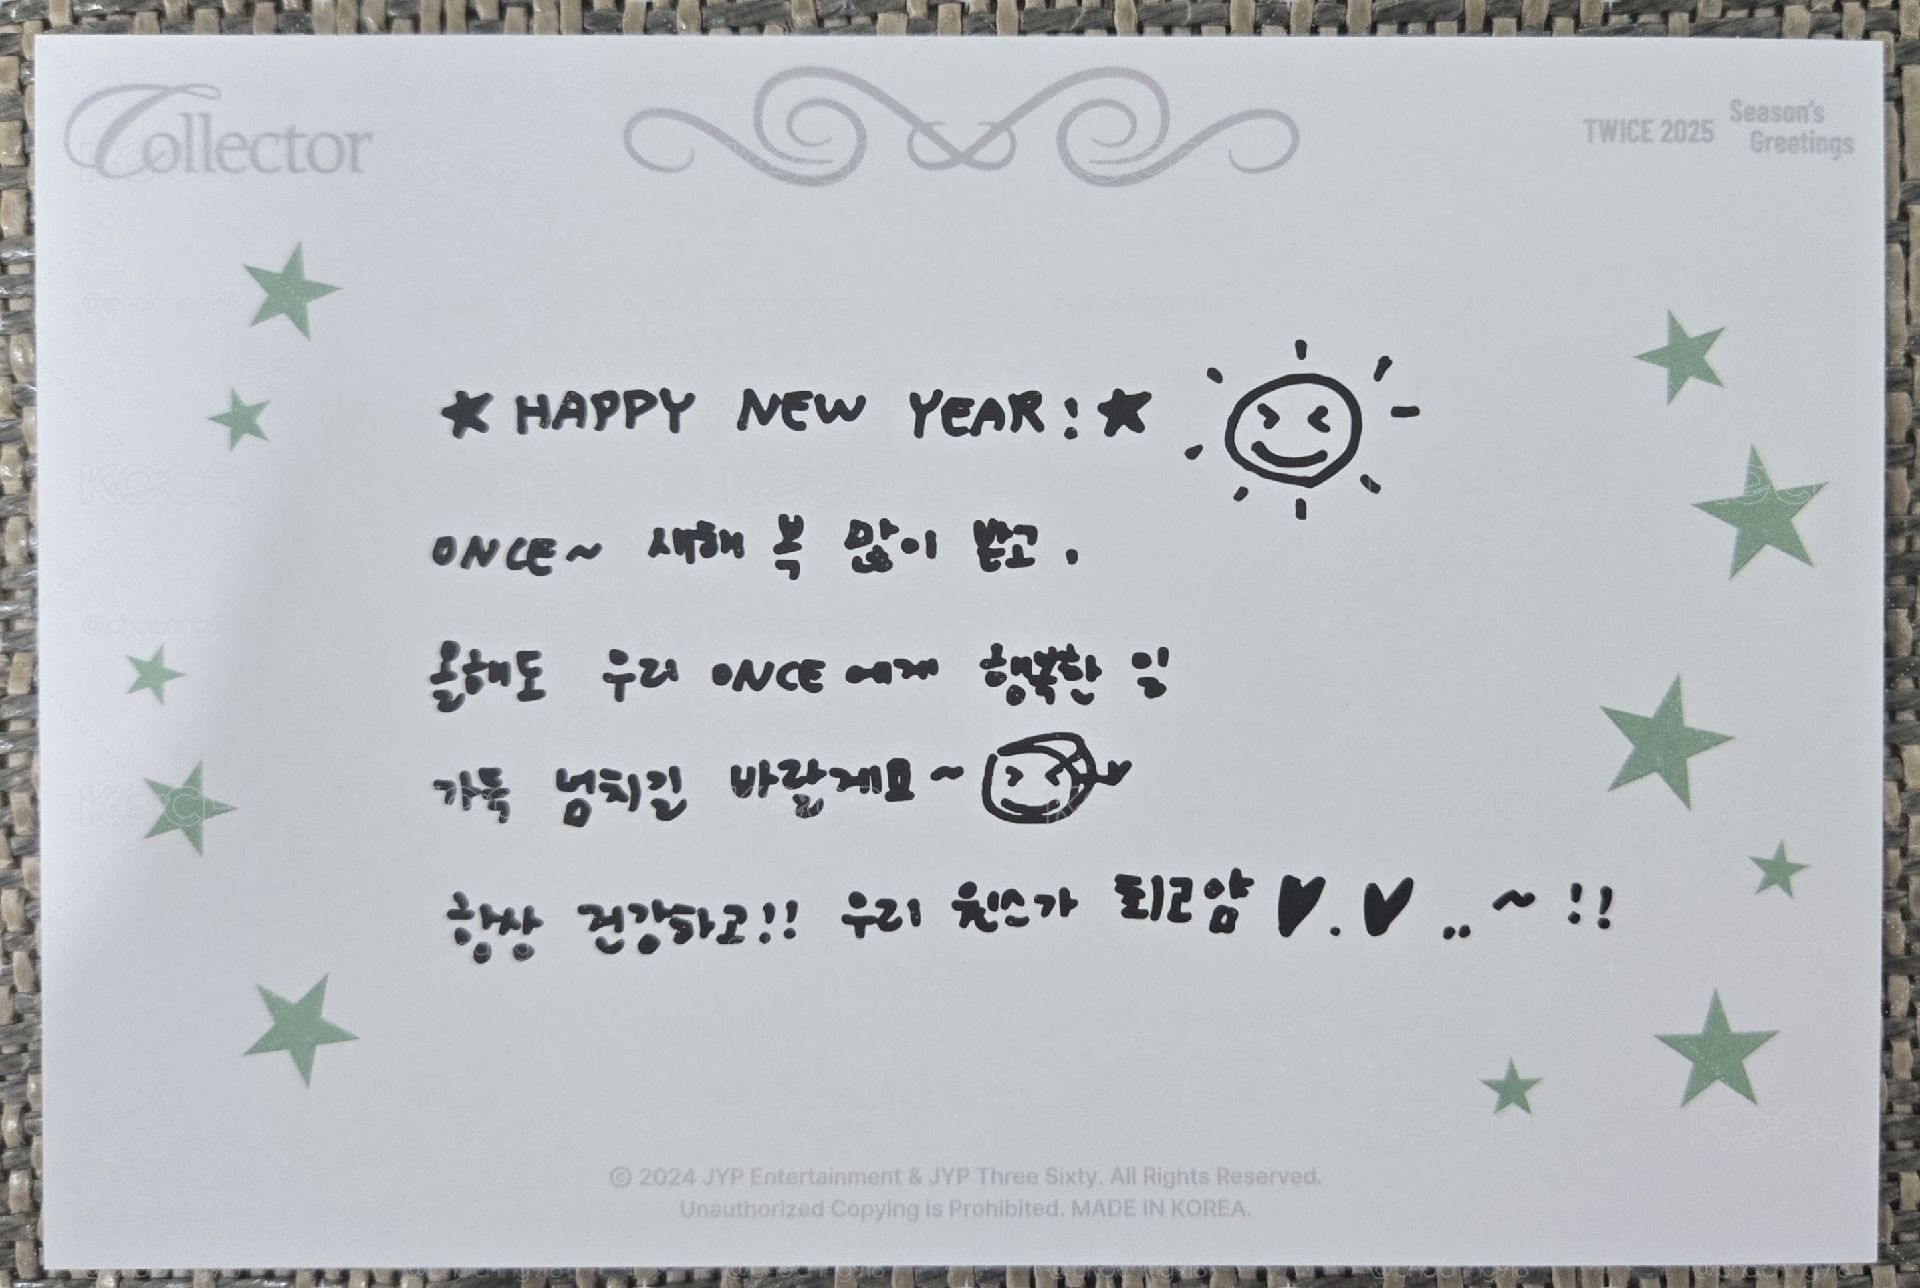 Collector
TWICE 2025 Season's Greetings
★ HAPPY NEW YEAR! ★
ONCE~ 새해 복 많이 받고,
올해도 우리 ONCE에게 행복한 일
가득 넘치길 바랄게요~
항상 건강하고!! 우리 원스가 최고얌♥.♥..~!!
© 2024 JYP Entertainment & JYP Three Sixty. All Rights Reserved.
Unauthorized Copying is Prohibited. MADE IN KOREA.
KOCA